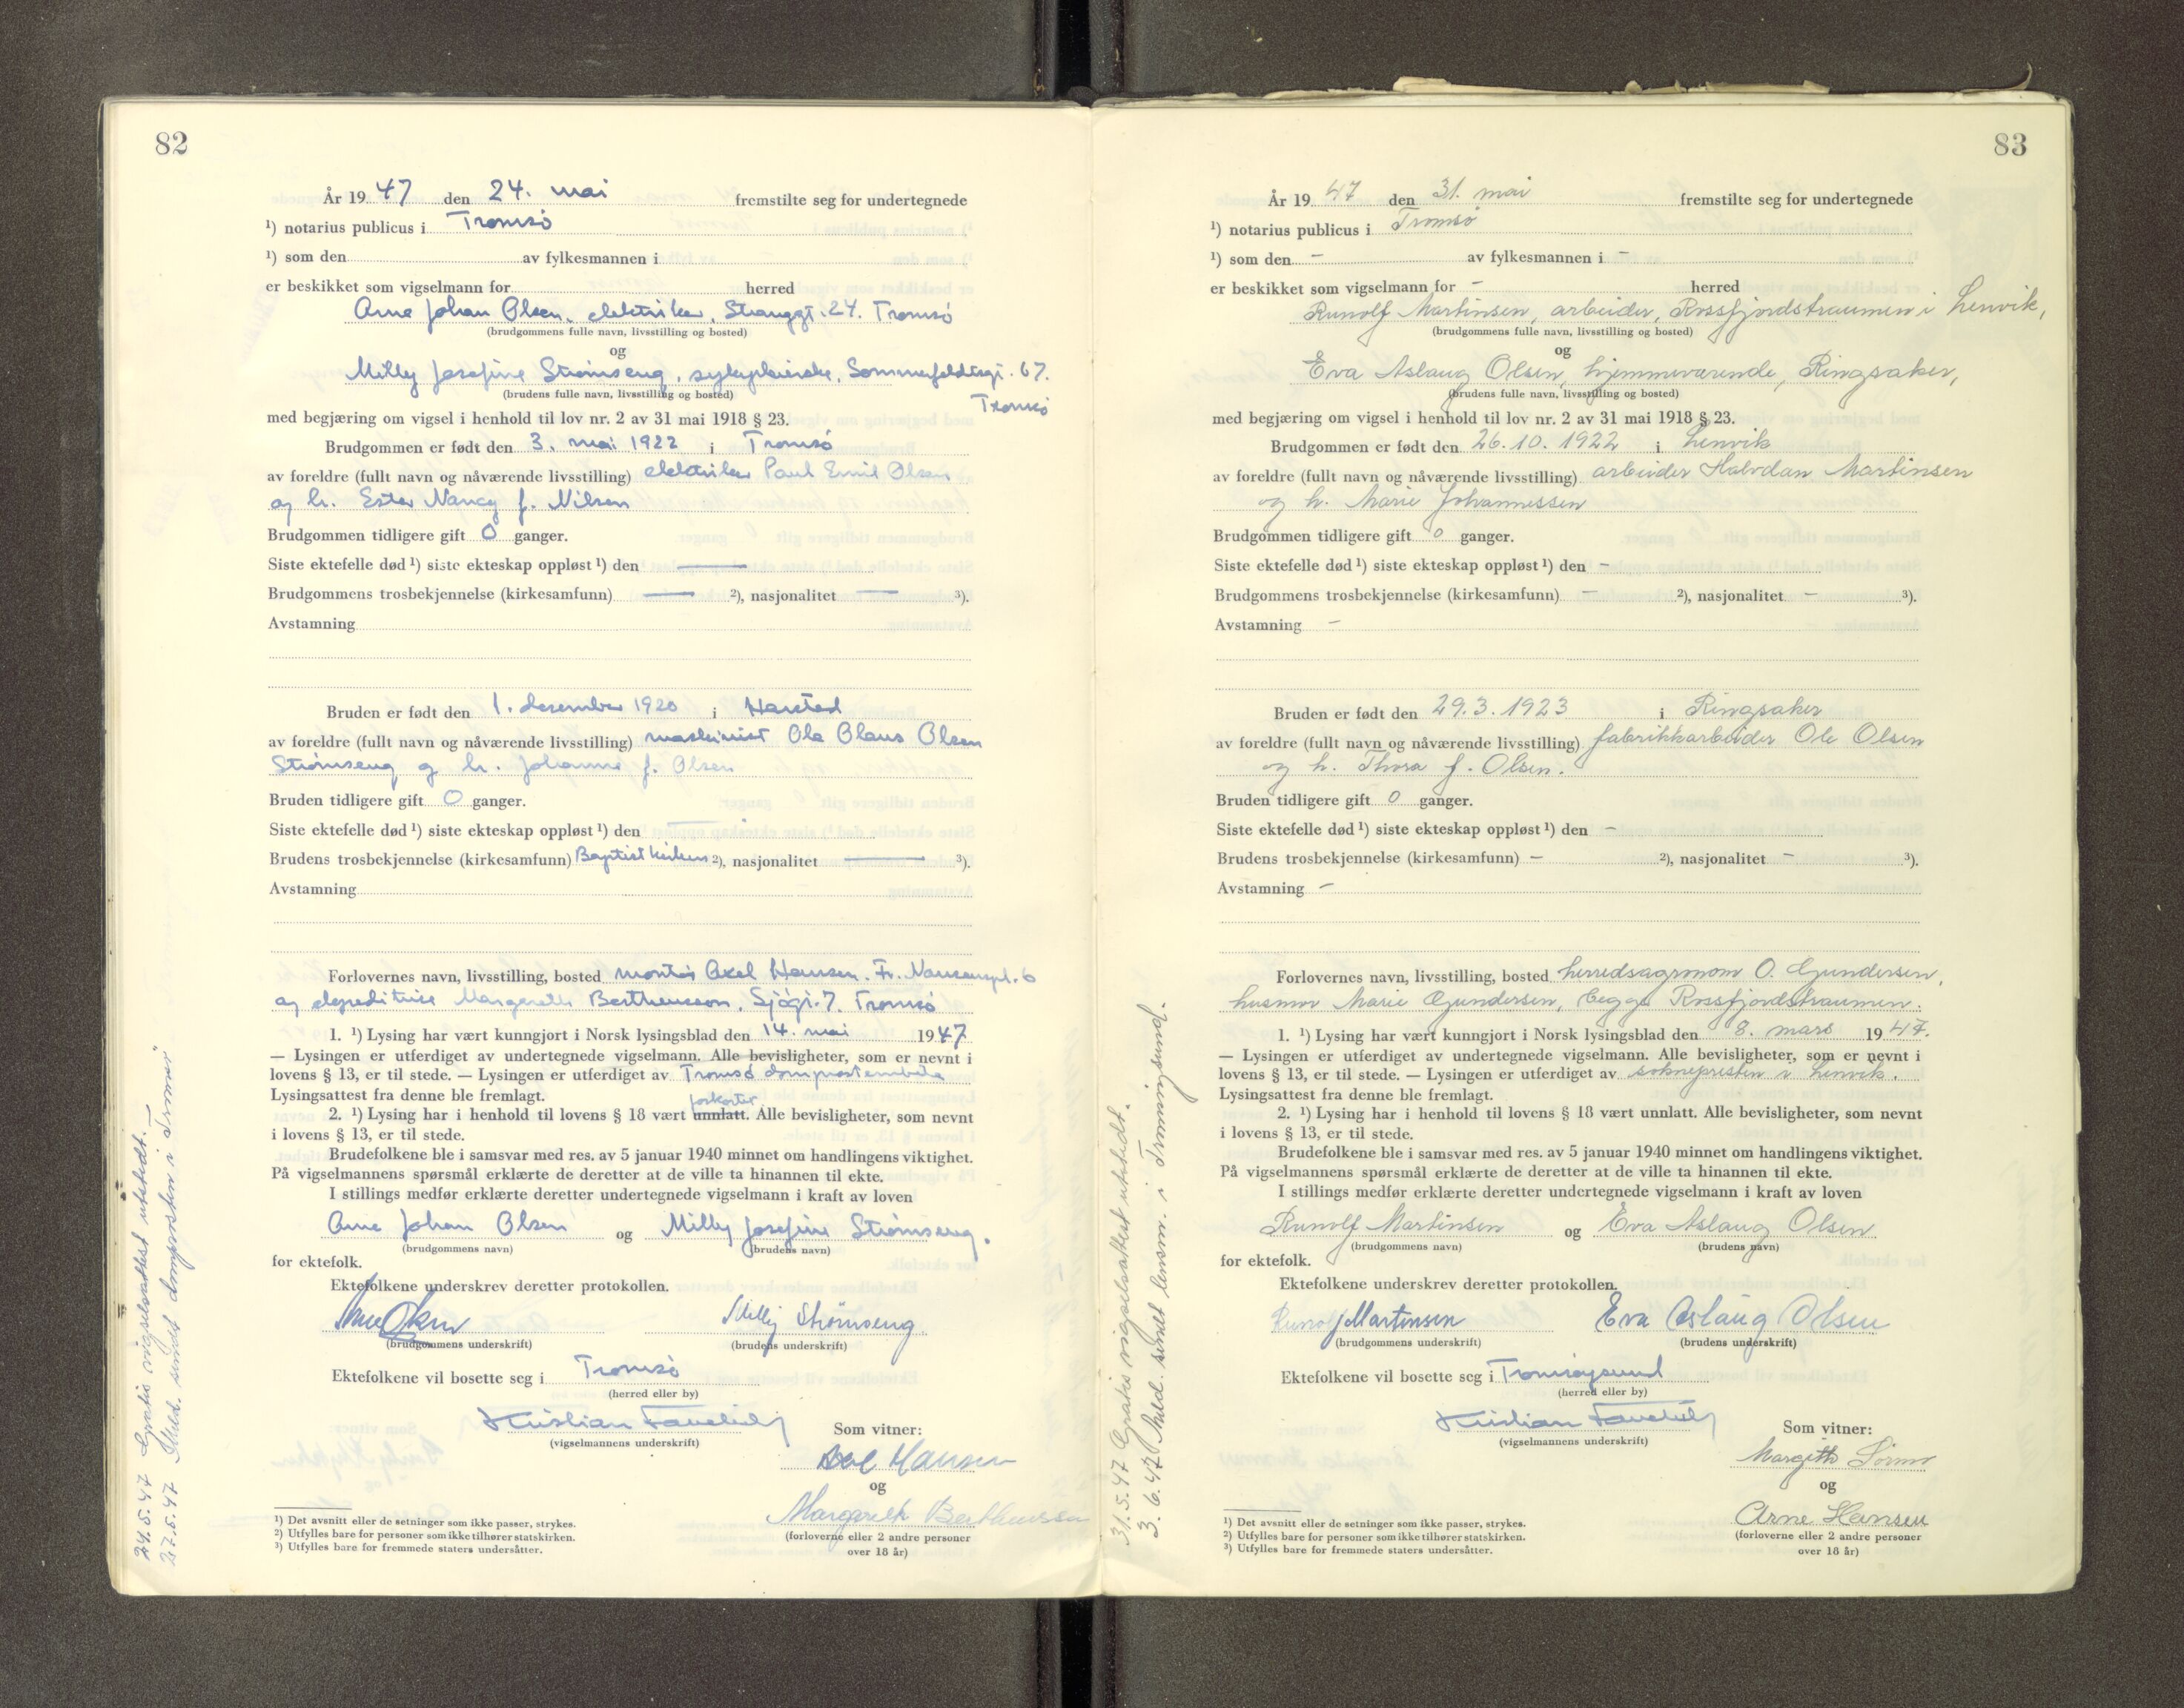 82
År 19 47 den 24. mai fremstilte seg for undertegnede
¹) notarius publicus i Tromsö
¹) som den av fylkesmannen i
er beskikket som vigselmann for herred
Arne Johan Olsen, elektriker, Stranggt. 24. Tromsö
(brudgommens fulle navn, livsstilling og bosted)
og
Milly Josefine Strömseng, sykepleierske, Sommerfeldtsgt. 67.
(brudens fulle navn, livsstilling og bosted)
Tromsö
med begjæring om vigsel i henhold til lov nr. 2 av 31 mai 1918 § 23.
Brudgommen er født den 3. mai 1922 i Tromsö
av foreldre (fullt navn og nåværende livsstilling) elektriker Paul Emil Olsen
og h. Ester Nancy f. Nilsen
Brudgommen tidligere gift 0 ganger.
Siste ektefelle død ¹) siste ekteskap oppløst ¹) den —
Brudgommens trosbekjennelse (kirkesamfunn) — ²), nasjonalitet — ³).
Avstamning
Bruden er født den 1. desember 1920 i Harstad
av foreldre (fullt navn og nåværende livsstilling) maskinist Ole Olaus Olsen
Strömseng og h. Johanne f. Olsen
Bruden tidligere gift 0 ganger.
Siste ektefelle død ¹) siste ekteskap oppløst ¹) den —
Brudens trosbekjennelse (kirkesamfunn) Baptistkirken ²), nasjonalitet — ³).
Avstamning
Forlovernes navn, livsstilling, bosted montör Axel Hansen. Fr. Nansenspl. 6
og ekspeditrise Margareth Bertheussen, Sjögt. 7. Tromsö
1. ¹) Lysing har vært kunngjort i Norsk lysingsblad den 14. mai 1947
— Lysingen er utferdiget av undertegnede vigselmann. Alle bevisligheter, som er nevnt i
lovens § 13, er til stede. — Lysingen er utferdiget av Tromsö domprostembete
Lysingsattest fra denne ble fremlagt.
forkortet
2. ¹) Lysing har i henhold til lovens § 18 vært unnlatt. Alle bevisligheter, som nevnt
i lovens § 13, er til stede.
Brudefolkene ble i samsvar med res. av 5 januar 1940 minnet om handlingens viktighet.
På vigselmannens spørsmål erklærte de deretter at de ville ta hinannen til ekte.
I stillings medfør erklærte deretter undertegnede vigselmann i kraft av loven
Arne Johan Olsen og Milly Josefine Strömseng.
(brudgommens navn) (brudens navn)
for ektefolk.
Ektefolkene underskrev deretter protokollen.
Arne Olsen Milly Strömseng
(brudgommens underskrift) (brudens underskrift)
Ektefolkene vil bosette seg i Tromsö
(herred eller by)
Kristian
(vigselmannens underskrift)
Som vitner:
Axel Hansen
og
Margareth Bertheussen
(forloverne eller 2 andre personer
over 18 år)
¹) Det avsnitt eller de setninger som ikke passer, strykes.
²) Utfylles bare for personer som ikke tilhører statskirken.
³) Utfylles bare for fremmede staters undersåtter.
24.5.47 Gratis vigselsattest utstedt.
27.5.47 Meld. sendt domprosten i Tromsö
83
År 19 47 den 31. mai fremstilte seg for undertegnede
¹) notarius publicus i Tromsö
¹) som den - av fylkesmannen i -
er beskikket som vigselmann for - herred
Runolf Martinsen, arbeider, Rossfjordstraumen i Lenvik,
(brudgommens fulle navn, livsstilling og bosted)
og
Eva Aslaug Olsen, hjemmeværende, Ringsaker,
(brudens fulle navn, livsstilling og bosted)
med begjæring om vigsel i henhold til lov nr. 2 av 31 mai 1918 § 23.
Brudgommen er født den 26.10.1922 i Lenvik
av foreldre (fullt navn og nåværende livsstilling) arbeider Halvdan Martinsen
og h. Marie Johannessen
Brudgommen tidligere gift 0 ganger.
Siste ektefelle død ¹) siste ekteskap oppløst ¹) den -
Brudgommens trosbekjennelse (kirkesamfunn) - ²), nasjonalitet - ³).
Avstamning -
Bruden er født den 29.3.1923 i Ringsaker
av foreldre (fullt navn og nåværende livsstilling) fabrikkarbeider Ole Olsen
og h. Thora f. Olsen.
Bruden tidligere gift 0 ganger.
Siste ektefelle død ¹) siste ekteskap oppløst ¹) den -
Brudens trosbekjennelse (kirkesamfunn) - ²), nasjonalitet - ³).
Avstamning -
Forlovernes navn, livsstilling, bosted herredsagronom O. Gundersen,
husmor Marie Gundersen, begge Rossfjordstraumen.
1. ¹) Lysing har vært kunngjort i Norsk lysingsblad den 8. mars 1947.
— Lysingen er utferdiget av undertegnede vigselmann. Alle bevisligheter, som er nevnt i
lovens § 13, er til stede. — Lysingen er utferdiget av soknepresten i Lenvik.
Lysingsattest fra denne ble fremlagt.
2. ¹) Lysing har i henhold til lovens § 18 vært unnlatt. Alle bevisligheter, som nevnt
i lovens § 13, er til stede.
Brudefolkene ble i samsvar med res. av 5 januar 1940 minnet om handlingens viktighet.
På vigselmannens spørsmål erklærte de deretter at de ville ta hinannen til ekte.
I stillings medfør erklærte deretter undertegnede vigselmann i kraft av loven
Runolf Martinsen og Eva Aslaug Olsen
(brudgommens navn) (brudens navn)
for ektefolk.
Ektefolkene underskrev deretter protokollen.
Runolf Martinsen Eva Aslaug Olsen
(brudgommens underskrift) (brudens underskrift)
Ektefolkene vil bosette seg i Tromsöysund
(herred eller by)
Kristian
(vigselmannens underskrift)
Som vitner:
Margith
og
Arne Hansen
(forloverne eller 2 andre personer
over 18 år)
¹) Det avsnitt eller de setninger som ikke passer, strykes.
²) Utfylles bare for personer som ikke tilhører statskirken.
³) Utfylles bare for fremmede staters undersåtter.
31.5.47 Gratis vigselsattest utstedt.
3.6.47 Meld. sendt lensm. i Tromöysund.